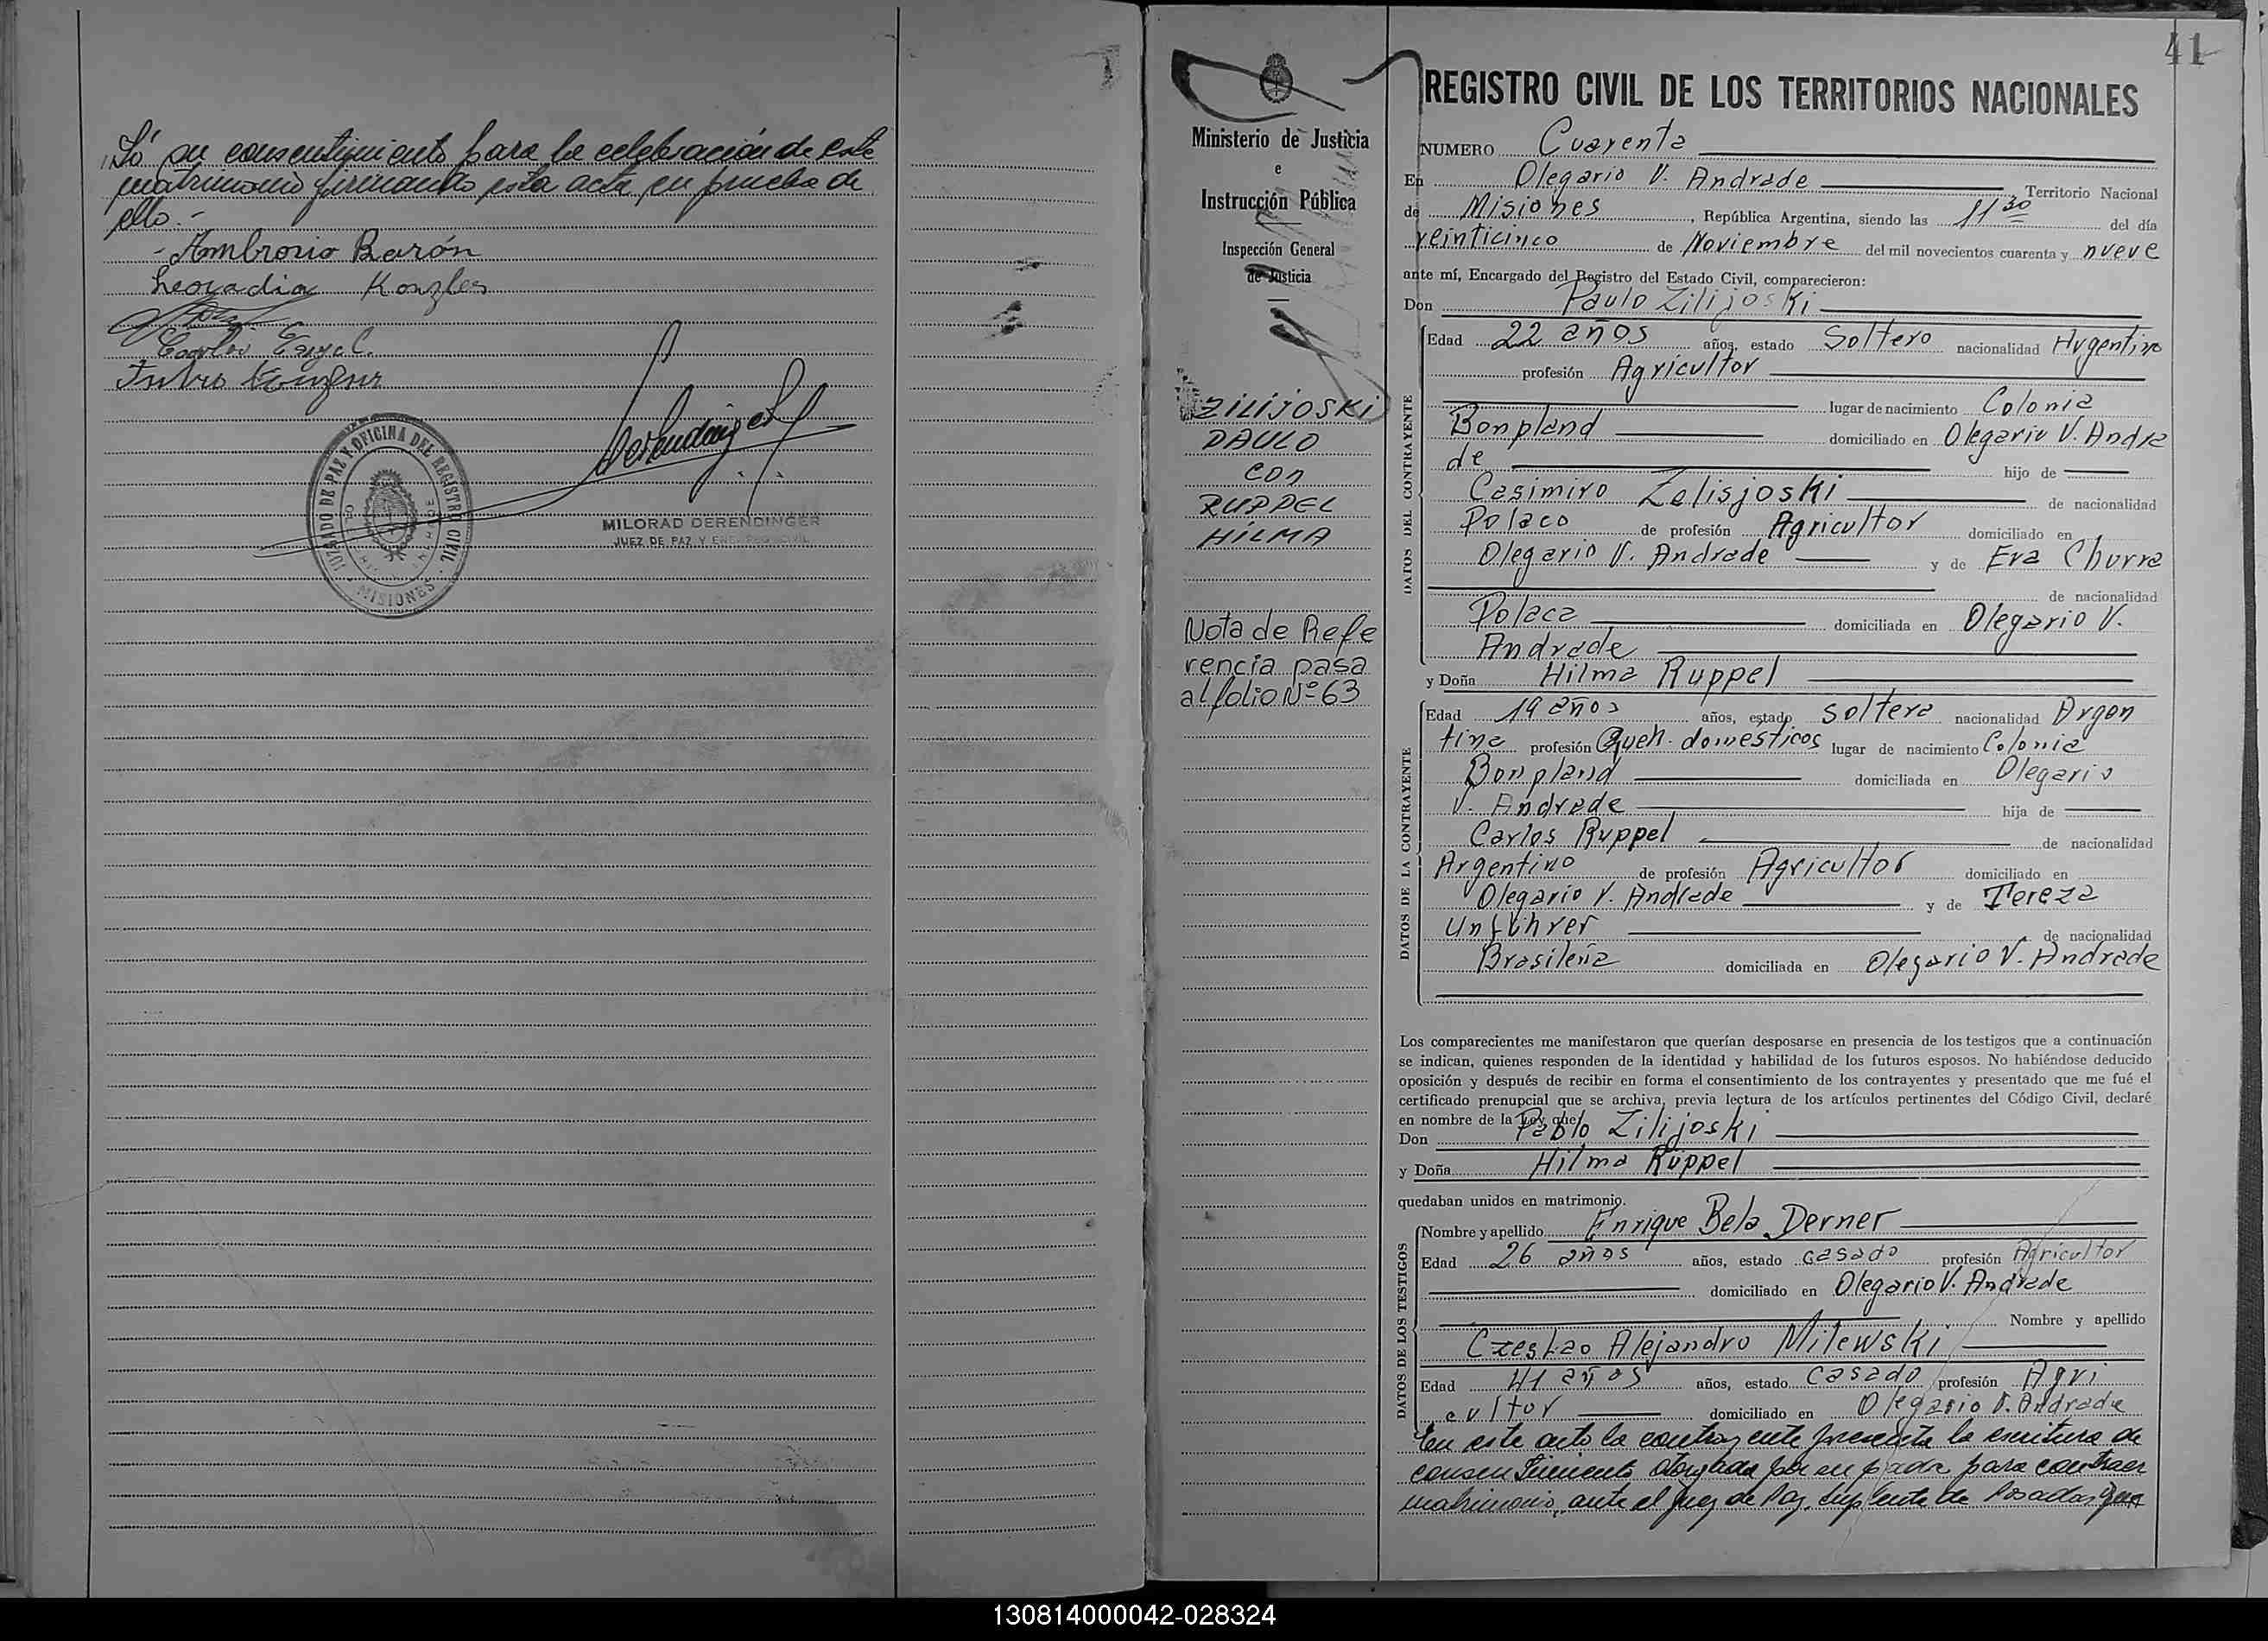 ió su consentimiento para la celebración de este
matrimonio firmando esta acta en prueba de
ello.-
Ambrosio Barón
Leocadia Konzlen
Carlos Engel.
JUZGADO DE PAZ Y OFICINA DEL REGISTRO CIVIL
MISIONES
Derendinger
MILORAD DERENDINGER
JUEZ DE PAZ Y ENC. REG. CIVIL
41
Ministerio de Justicia
e
Instrucción Pública
Inspección General
de Justicia
ZILIJOSKI
PAULO
con
RUPPEL
HILMA
Nota de Refe
rencia pasa
al folio Nº 63
REGISTRO CIVIL DE LOS TERRITORIOS NACIONALES
NUMERO Cuarenta
En Olegario V. Andrade Territorio Nacional
de Misiones, República Argentina, siendo las 11 30 del día
veinticinco de Noviembre del mil novecientos cuarenta y nueve
ante mí, Encargado del Registro del Estado Civil, comparecieron:
Don Paulo Zilijoski
DATOS DEL CONTRAYENTE
Edad 22 años años, estado Soltero nacionalidad Argentino
profesión Agricultor
lugar de nacimiento Colonia
Bonpland domiciliado en Olegario V. Andra
de hijo de
Casimiro Zelisjoski de nacionalidad
Polaco de profesión Agricultor domiciliado en
Olegario V. Andrade y de Eva Churra
de nacionalidad
Polaca domiciliada en Olegario V.
Andrade
y Doña Hilma Ruppel
DATOS DE LA CONTRAYENTE
Edad 19 años años, estado soltera nacionalidad Argen
tina profesión Queh. domésticos lugar de nacimiento Colonia
Bonpland domiciliada en Olegario
V. Andrade hija de
Carlos Ruppel de nacionalidad
Argentino de profesión Agricultor domiciliado en
Olegario V. Andrade y de Tereza
Unführer de nacionalidad
Brasileña domiciliada en Olegario V. Andrade
Los comparecientes me manifestaron que querían desposarse en presencia de los testigos que a continuación
se indican, quienes responden de la identidad y habilidad de los futuros esposos. No habiéndose deducido
oposición y después de recibir en forma el consentimiento de los contrayentes y presentado que me fué el
certificado prenupcial que se archiva, previa lectura de los artículos pertinentes del Código Civil, declaré
en nombre de la Ley que:
Don Pablo Zilijoski
y Doña Hilma Rüppel
quedaban unidos en matrimonio.
DATOS DE LOS TESTIGOS
Nombre y apellido Enrique Bela Derner
Edad 26 años años, estado casado profesión Agricultor
domiciliado en Olegario V. Andrade
Nombre y apellido
Czeslao Alejandro Milewski
Edad 41 años años, estado casado profesión Agri
cultor domiciliado en Olegario V. Andrade
En este acto la contrayente presenta la escritura de
consentimiento otorgada por su padre para contraer
matrimonio, ante el Juez de Paz Suplente de Posadas que
130814000042-028324